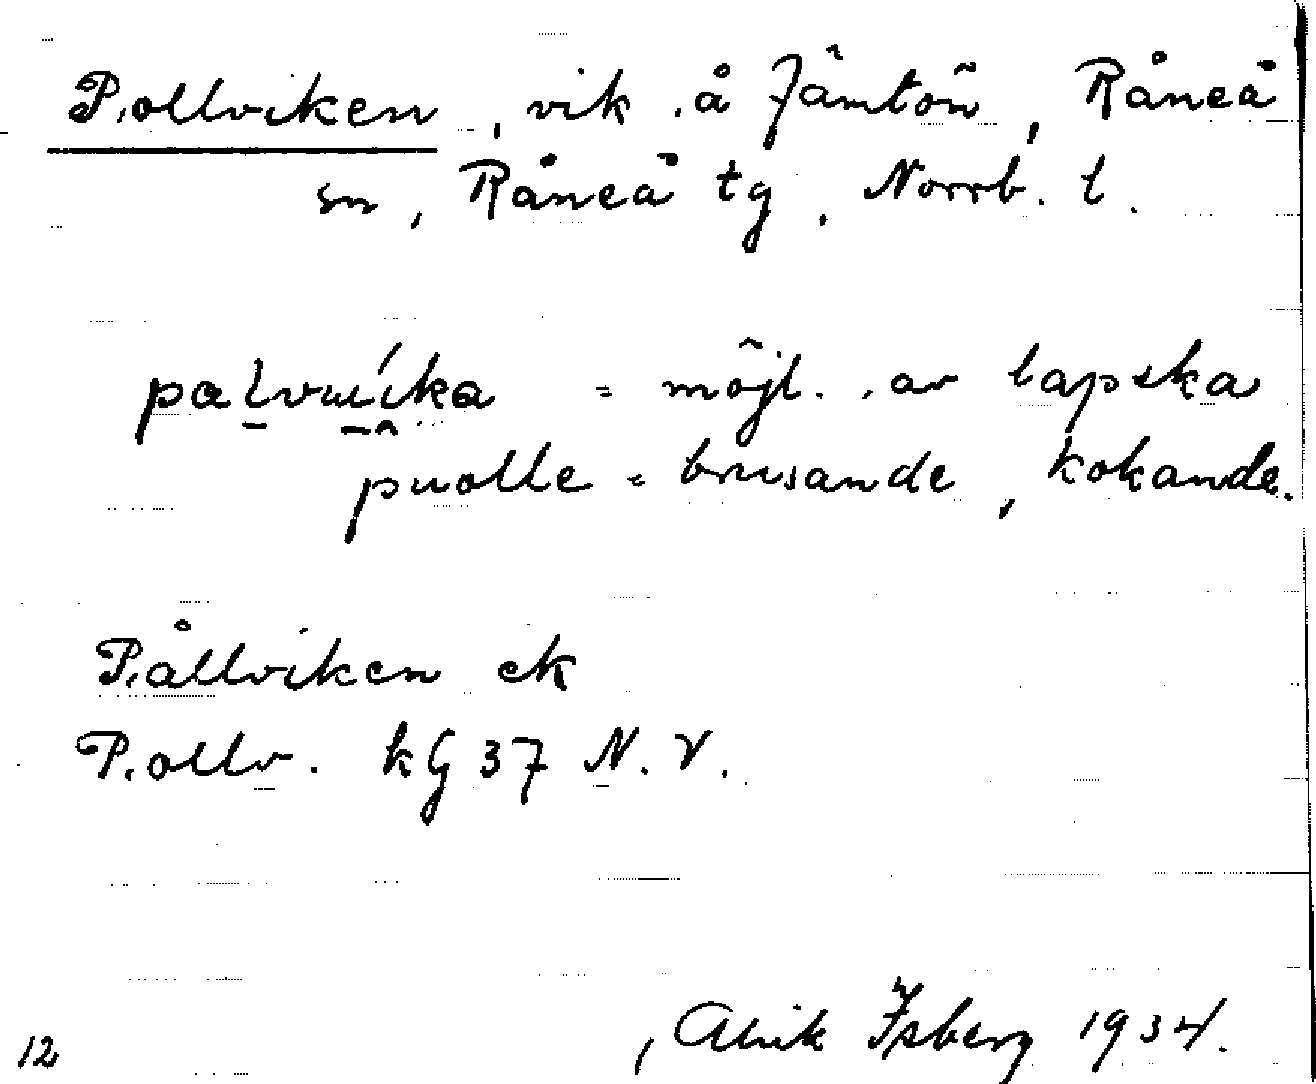 Pollviken, vik å Jämtön, Råneå
sn, Råneå tg, Norrb. l.
= möjl. av lapska
puolle = brusande, kokande.
Pållviken ek
Pollv. kG 37 N.V.
Alrik Isberg 1934.
12